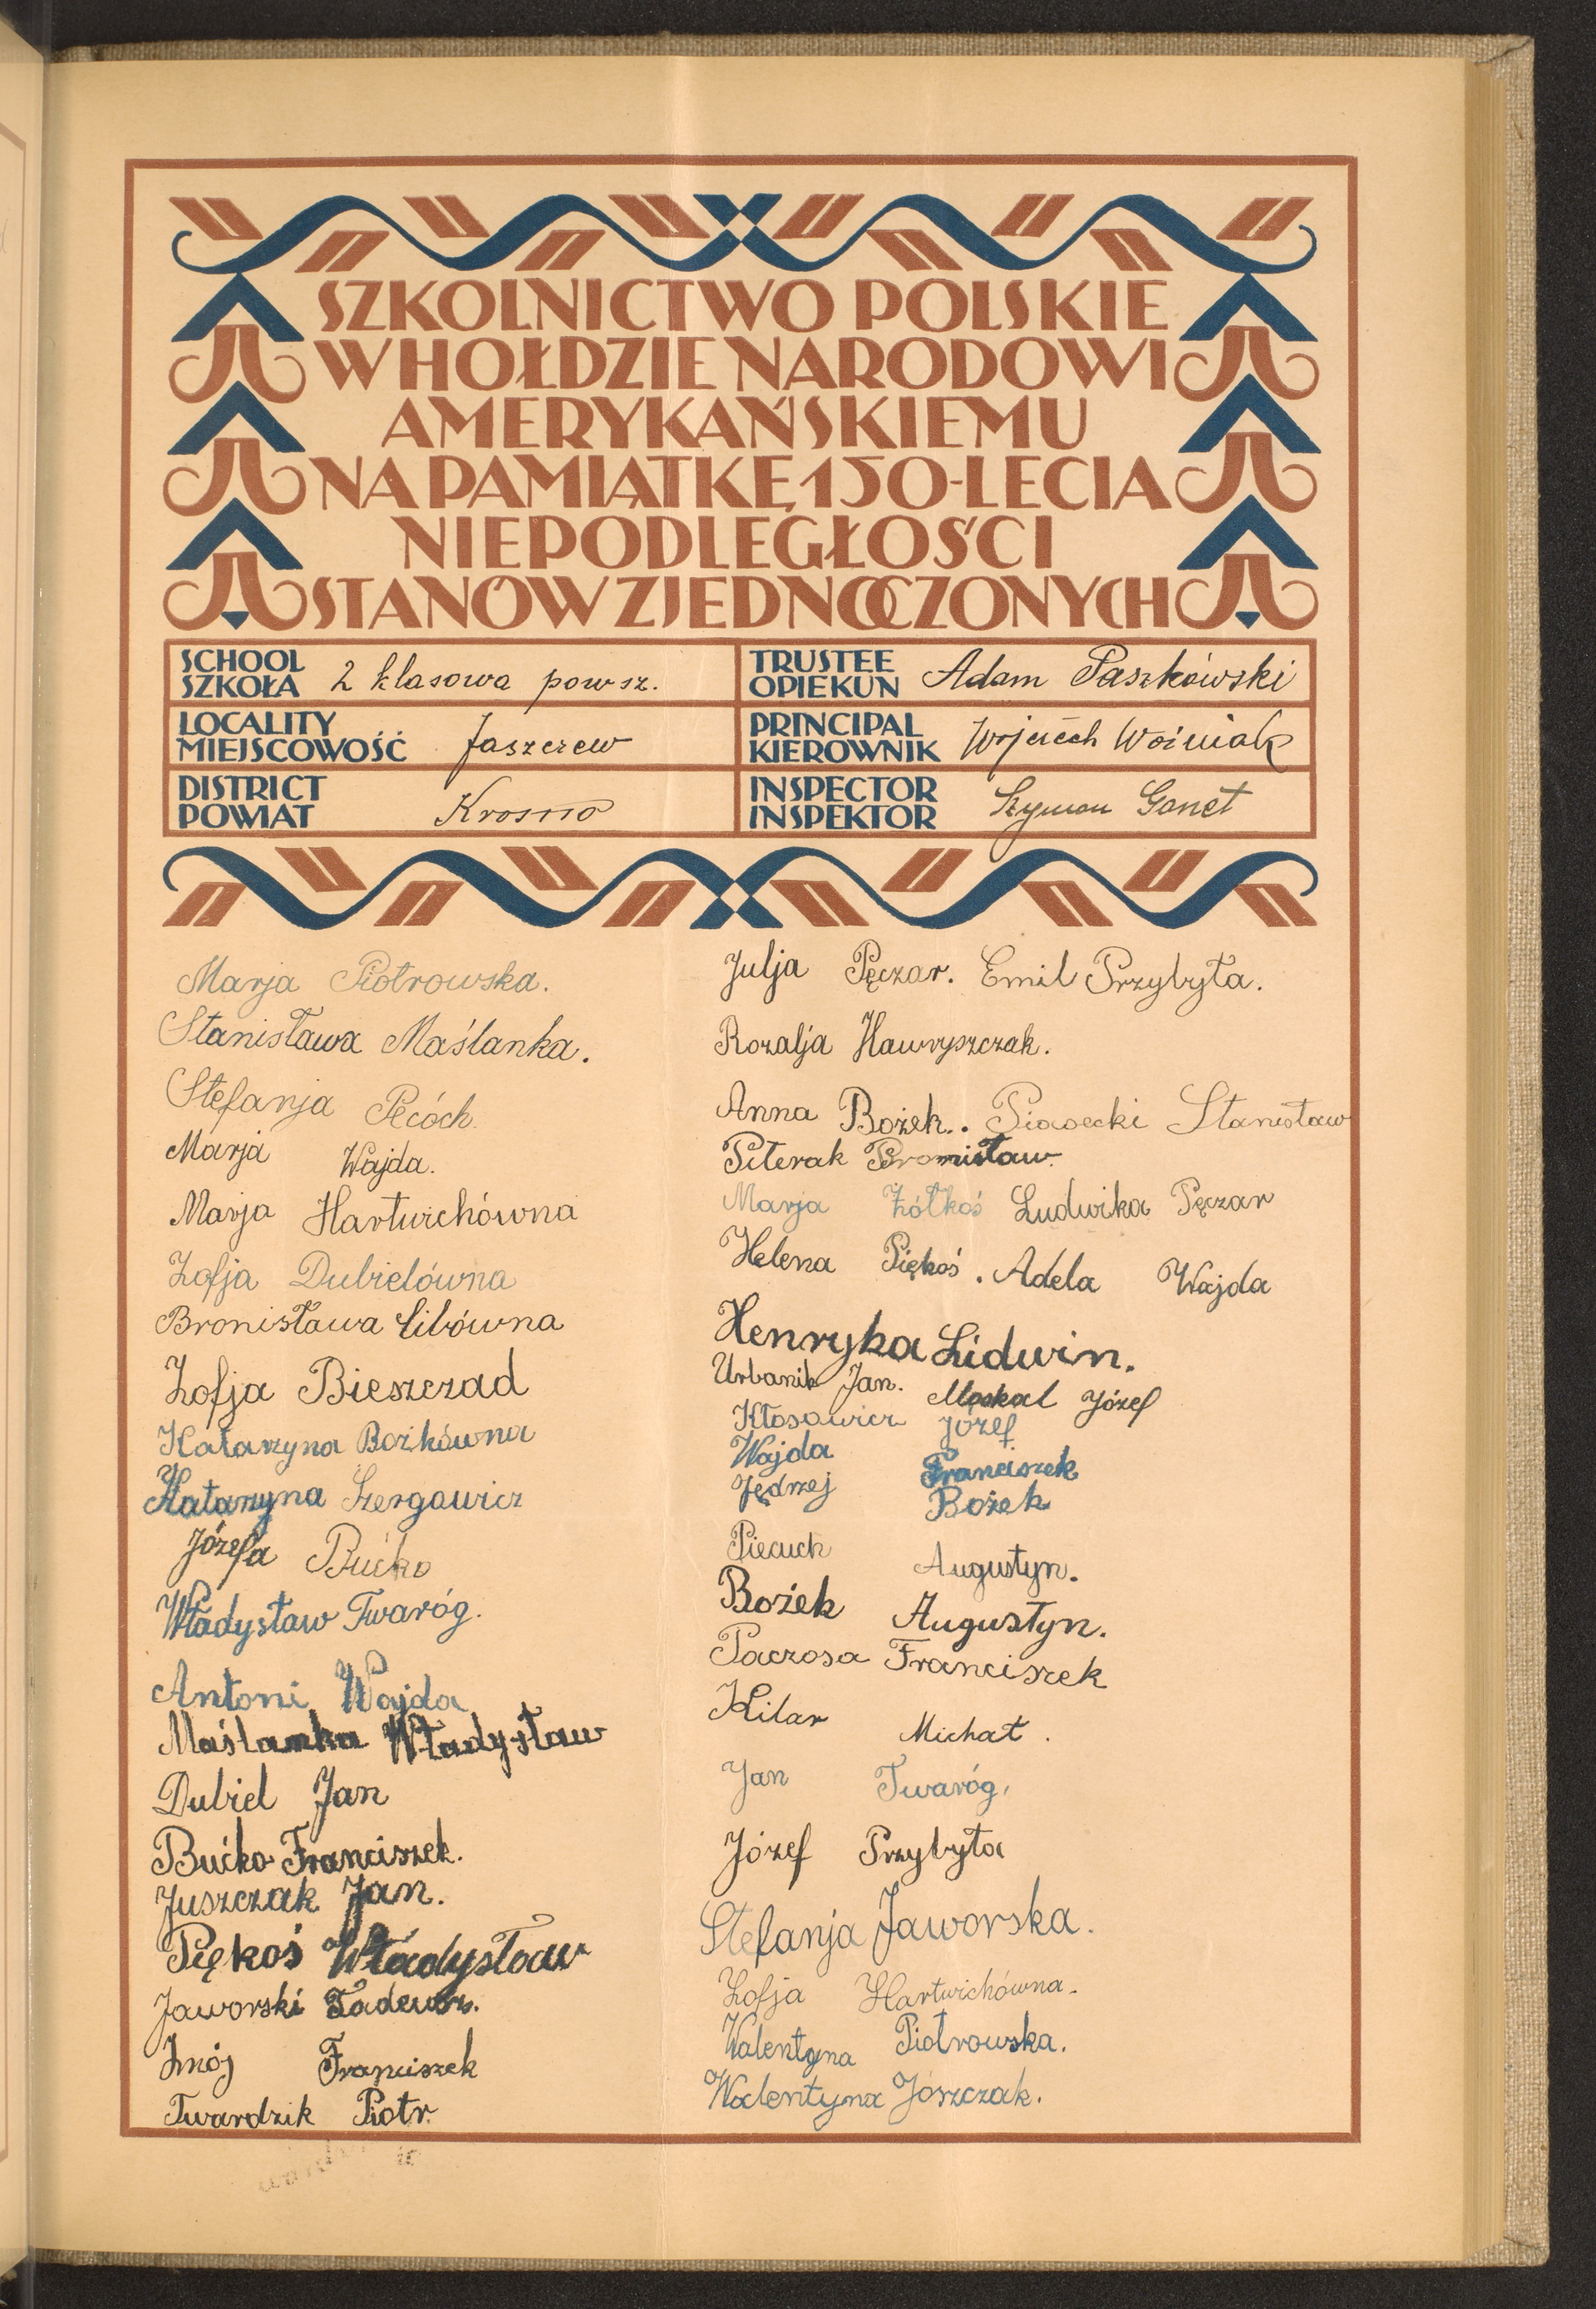 SZKOLNICTWO POLSKIE
W HOŁDZIE NARODOWI
AMERYKAŃSKIEMU
NA PAMIĄTKĘ 150-LECIA
NIEPODLEGŁOŚCI
STANÓW ZJEDNOCZONYCH
SCHOOL
SZKOŁA 2 klasowa powsz.
TRUSTEE
OPIEKUN Adam Paszkówski
LOCALITY
MIEJSCOWOŚĆ Jaszczew
PRINCIPAL
KIEROWNIK Wojciech Woźniak
DISTRICT
POWIAT Krosno
INSPECTOR
INSPEKTOR Szymon Gonet
Marja Piotrowska.
Stanisława Maślanka.
Stefanja Pecóch.
Marja Wajda.
Marja Hartwichówna
Zofja Dubielówna
Bronisława Cibówna
Zofja Bieszczad
Katarzyna Bożkówna
Katarzyna Szergowicz
Józefa Bućko
Władysław Twaróg.
Antoni Wajda
Maślanka Władysław
Dubiel Jan
Bućko Franciszek.
Juszczak Jan.
Piękoś Władysław
Jaworski Tadeusz.
Żmój Franciszek
Twardzik Piotr.
Julja Pęczar. Emil Przybyła.
Rozalja Hawryszczak.
Anna Bożek. . Piasecki Stanisław
Piterak Bronisław.
Marja Żółkoś Ludwika Pęczar
Helena Piękoś. Adela Wajda
Henryka Lidwin.
Urbanik Jan. Moskal Józef
Kłosowicz Józef
Wajda Franciszek
Jędrzej Bożek
Piecuch Augustyn.
Bożek Augustyn.
Paczosa Franciszek
Kilar Michał.
Jan Twaróg,
Józef Przybyła
Stefanja Jaworska.
Zofja Hartwichówna.
Walentyna Piotrowska.
Walentyna Jószczak.